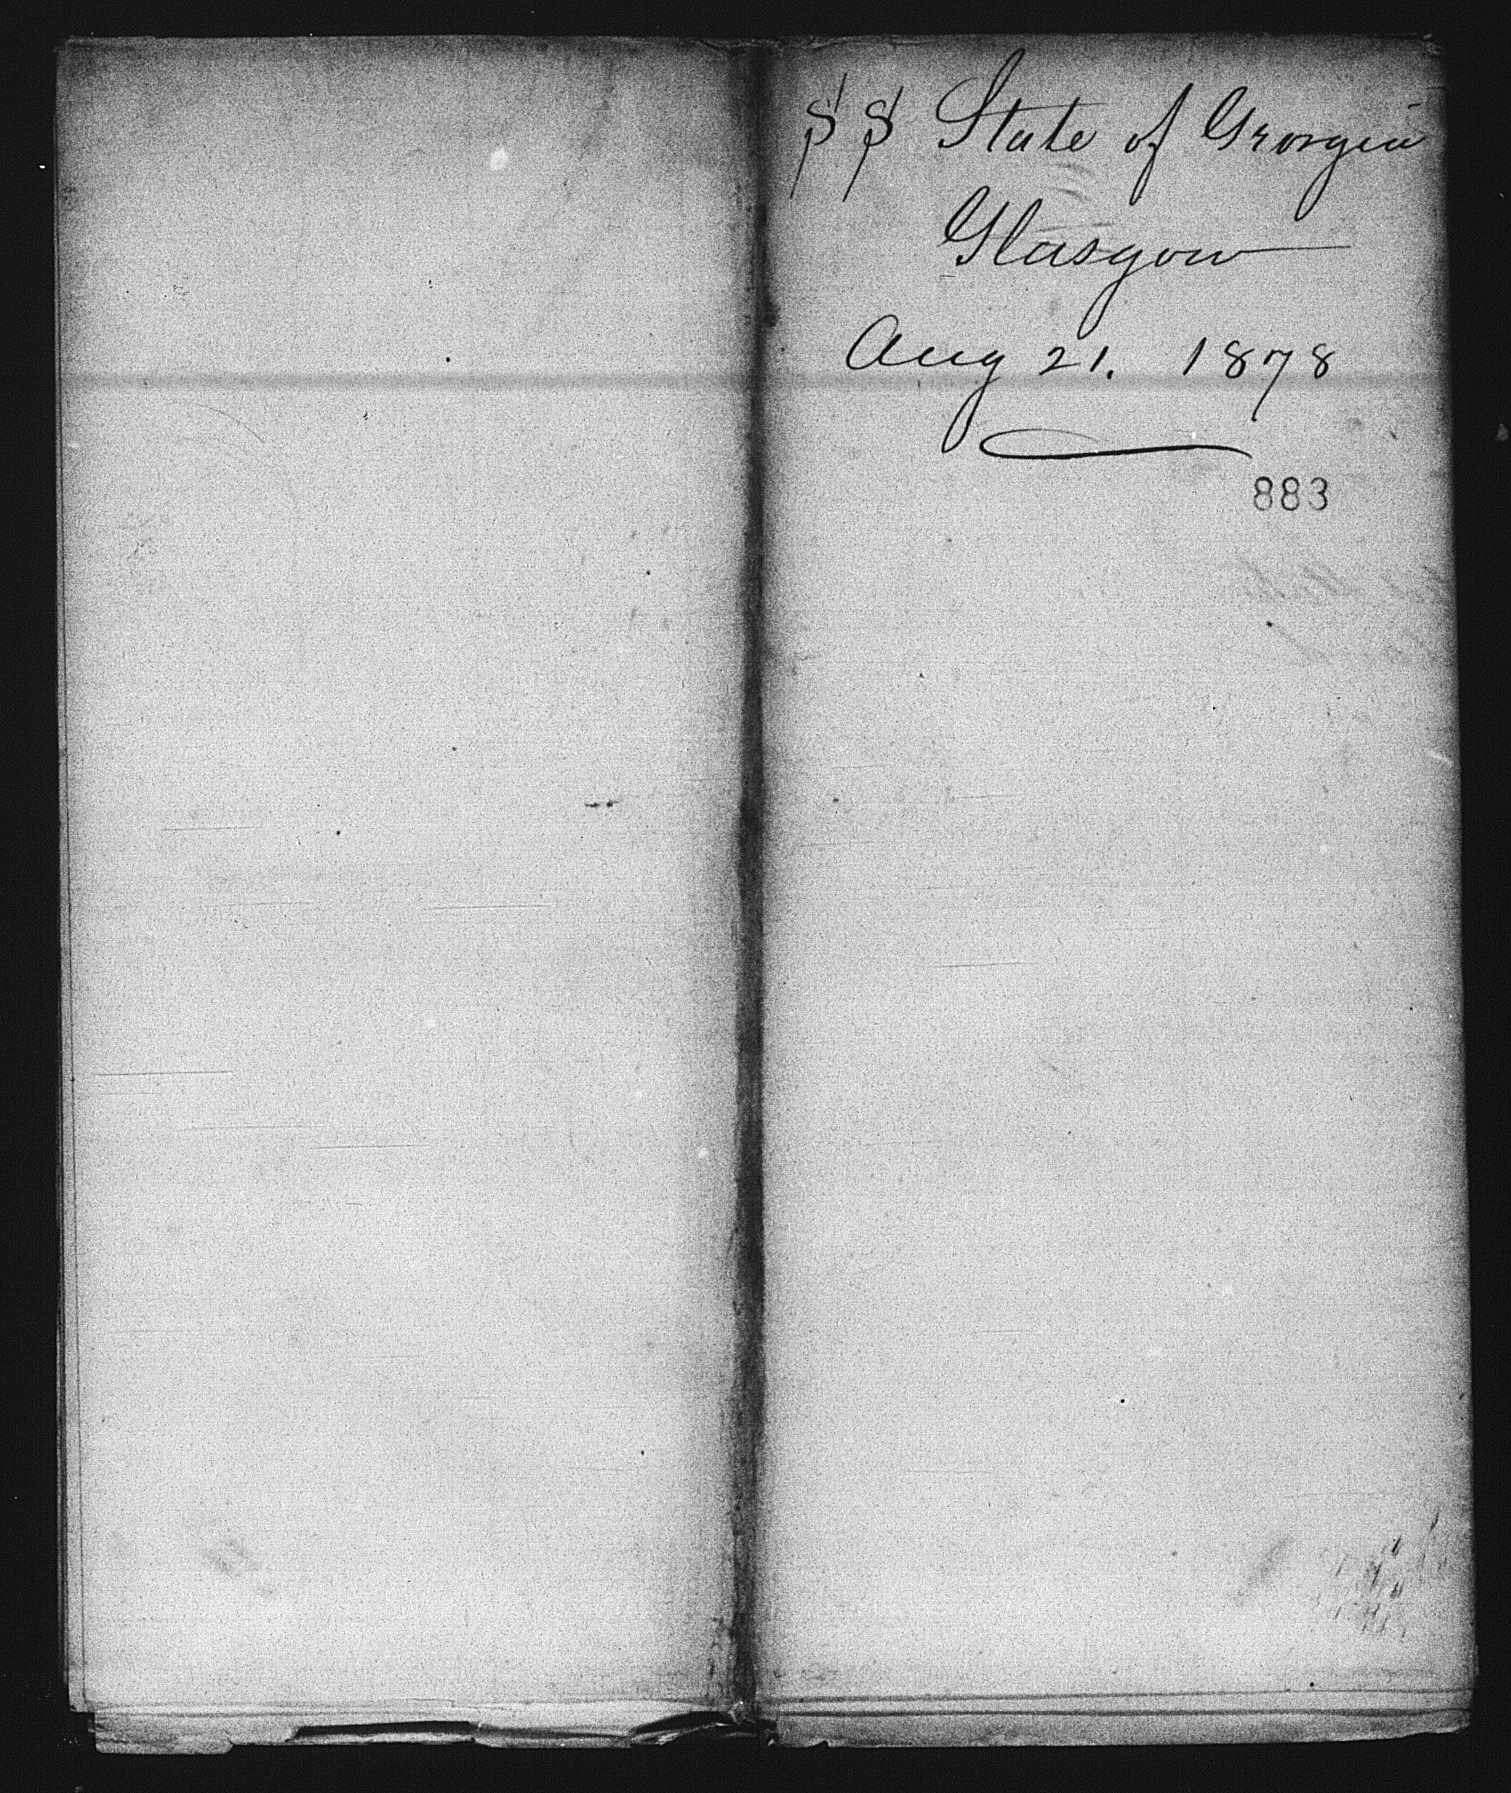 SS State of Georgia
Glasgow
Aug 21. 1878
883